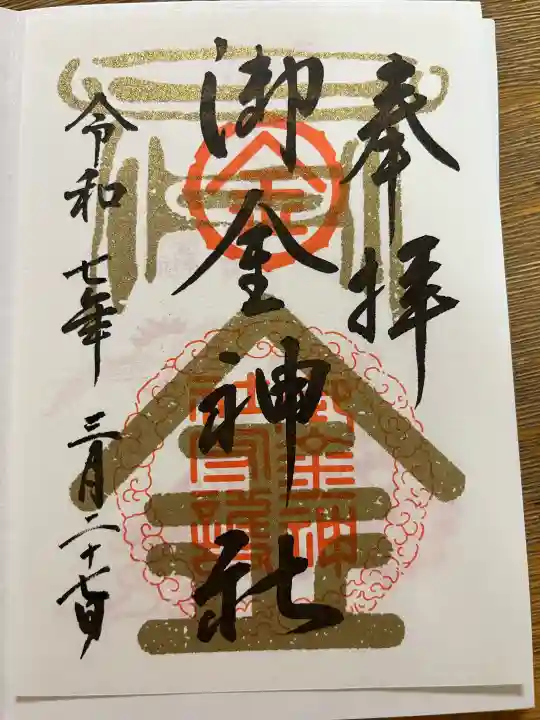 奉拝
御金神社
令和七年 三月二十七日
金